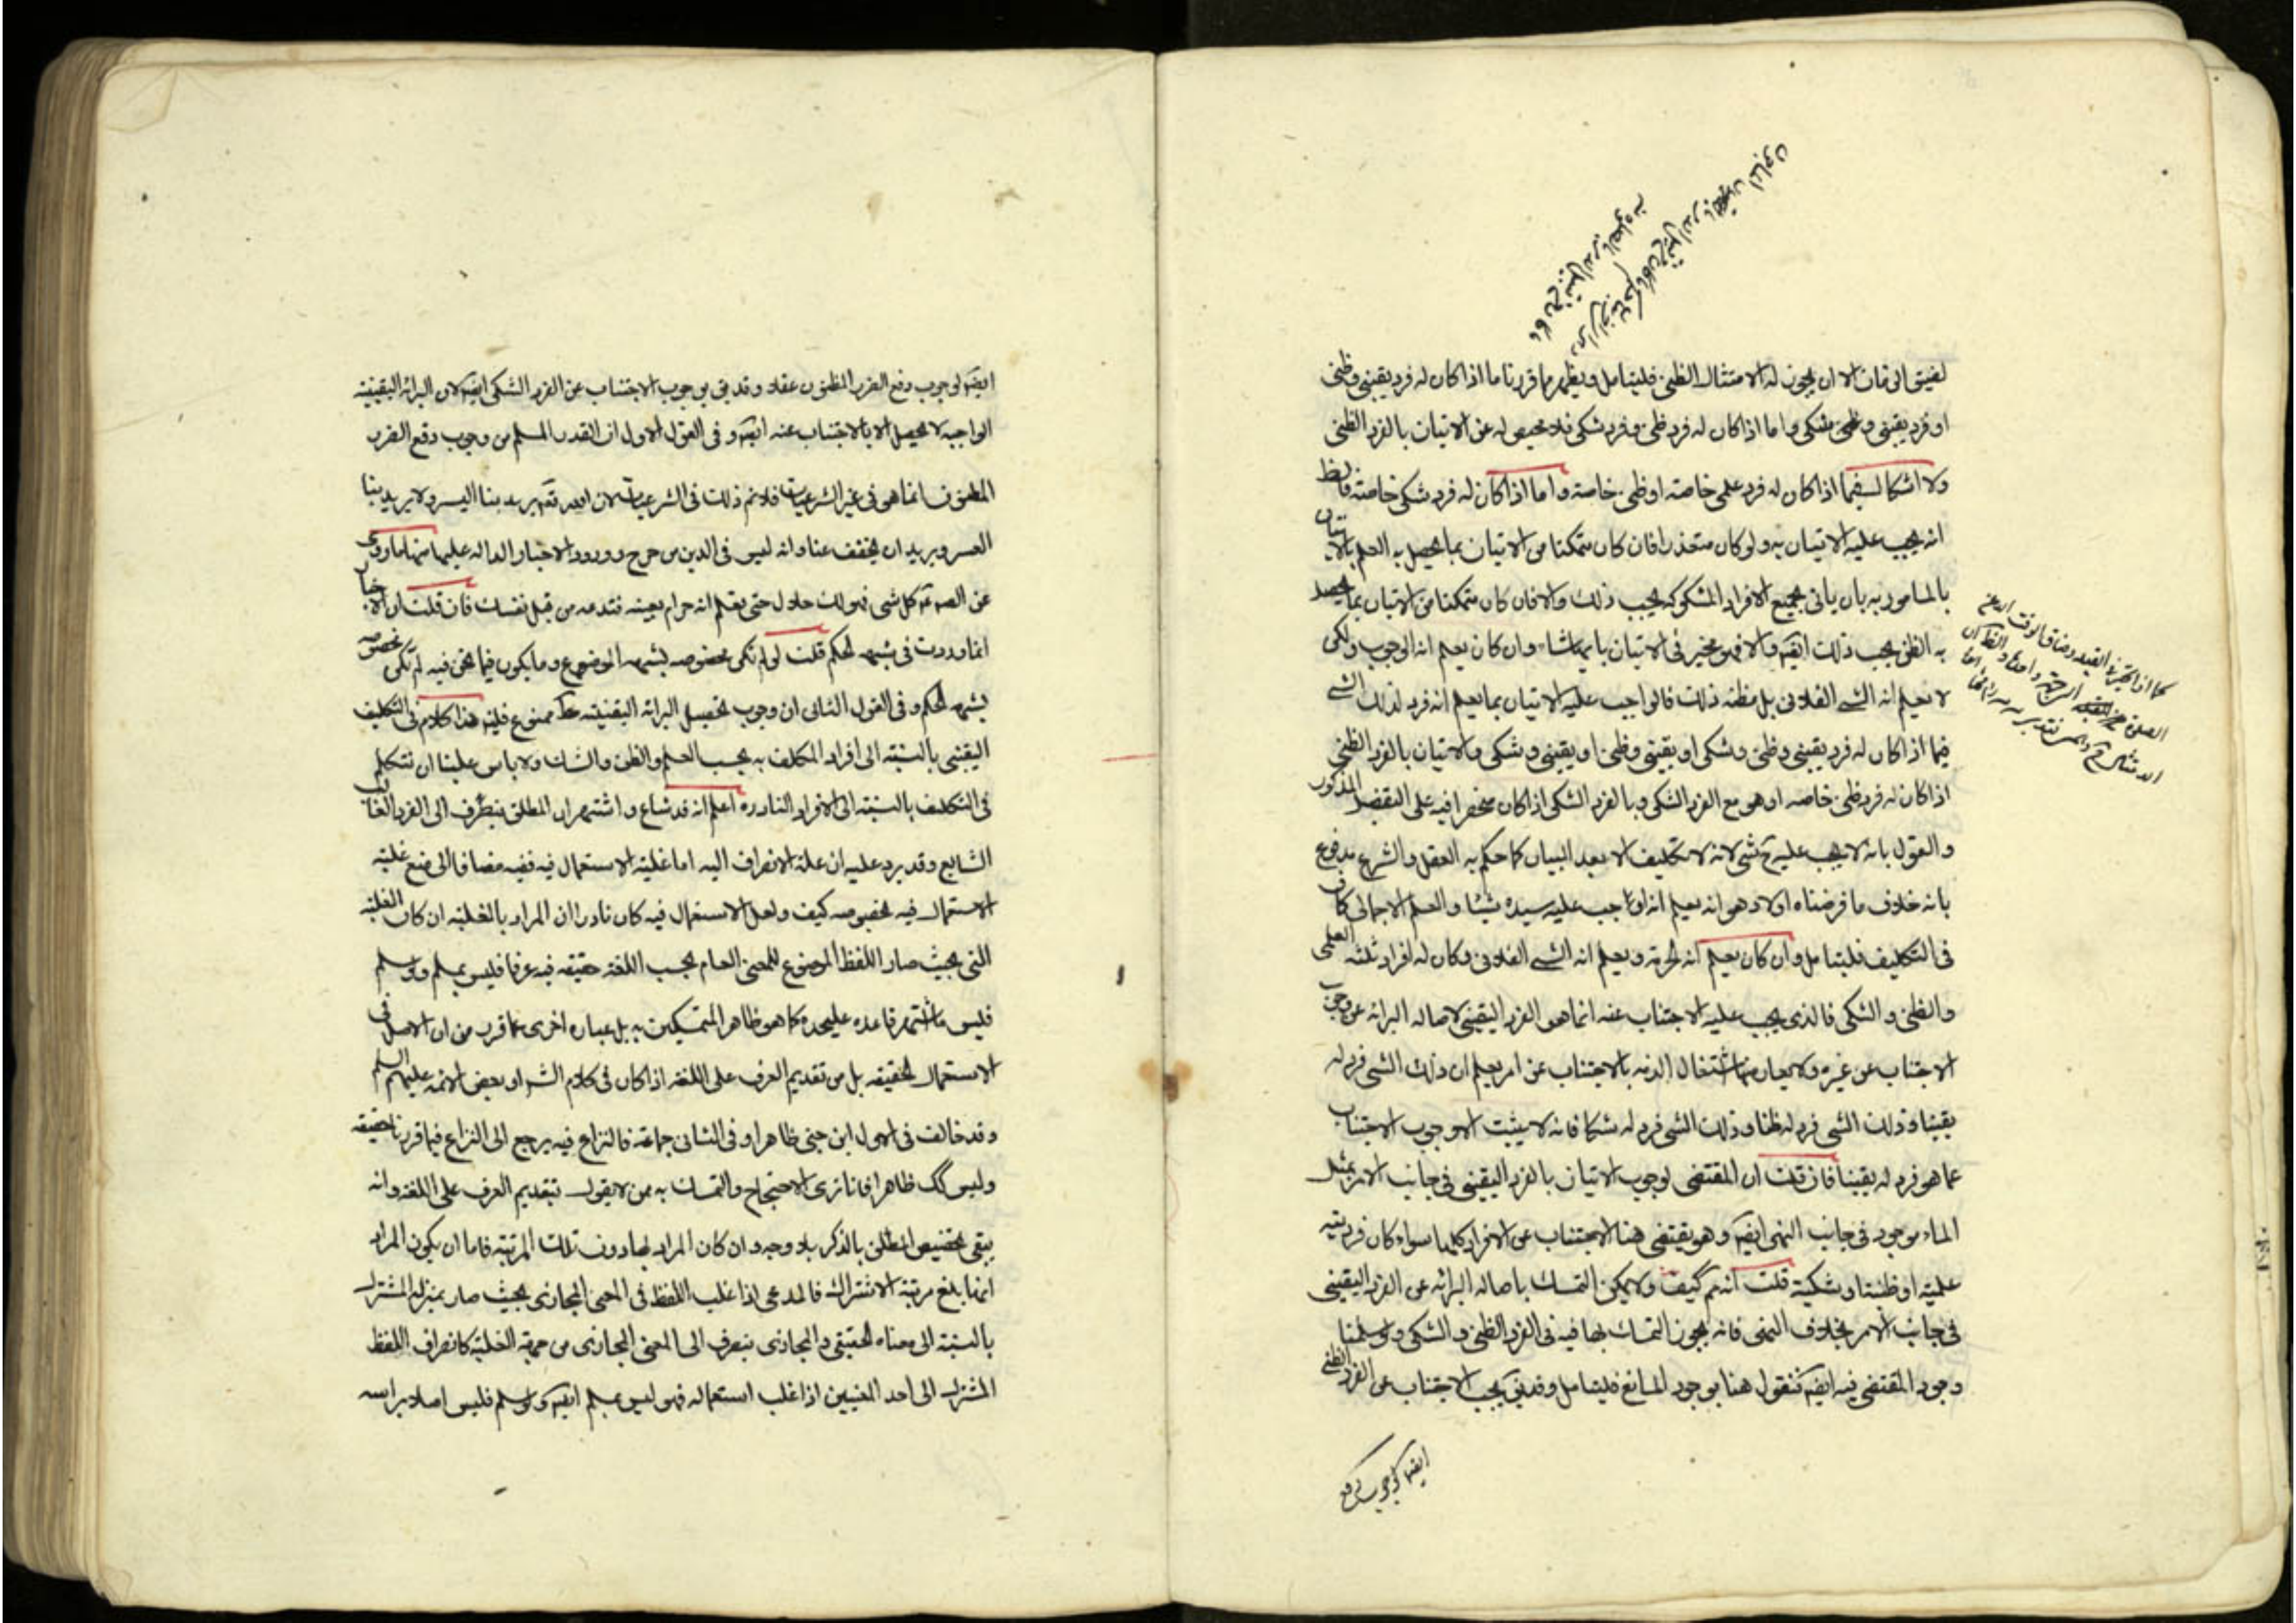 لضيق الوقت الا ان يجوز له الامتثال الظنى فليتامل ويظهر مما قررنا ما اذا كان له فرد يقينى وظنى
او فرد يقينى وظنى وشكى واما اذا كان له فرد ظنى وفرد شكى فلا محيص له عن الاتيان بالفرد الظنى
ولا اشكال فيما اذا كان له فرد علمى خاصة او ظنى خاصة واما اذا كان له فرد شكى خاصة فالظ
انه يجب عليه الاتيان به ولو كان متعذرا فان كان متمكنا من الاتيان بما يحصل به العلم بالاتيان
بالمامور به بان ياتى بجميع الافراد المشكوكة يجب ذلك والا فان كان متمكنا من الاتيان بما يحصل
به الظن يجب ذلك ايضه والا فهو مخير فى الاتيان بايها شاء وان كان يعلم انه الوجوب ولكن
لا يعلم انه الشئ الفلانى بل مظنه ذلك فالواجب عليه الاتيان بما يعلم انه فرد لذلك الشئ
فيما اذا كان له فرد يقينى وظنى وشكى او يقينى وظنى او يقينى وشكى والاتيان بالفرد الظنى
اذا كان له فرد ظنى خاصه او هو مع الفرد الشكى وبالفرد الشكى اذا كان منحصرا فيه على التفصيل المذكور
والقول بانه لا يجب عليه ح شئ لانه لا تكليف الا بعد البيان كما حكم به العقل والشرع مدفوع
بانه خلاف ما فرضناه اولا وهو انه يعلم انه اوجب عليه سيده شيئا والعلم الاجمالى كاف
فى التكليف فليتامل وان كان يعلم انه الحرمة ويعلم انه الشئ الفلانى وكان له افراد ثلثه العلمى
والظنى والشكى فالذى يجب عليه الاجتناب عنه انما هو الفرد اليقينى لاصاله البرائه عن وجوب
الاجتناب عن غيره ولا يعارضها اشتغال الذمه بالاجتناب عن امر يعلم ان ذلك الشئ فرد له
يقينا وذلك الشئ فرد له ظنا وذلك الشئ فرد له شكا فانه لا يثبت الا وجوب الاجتناب
عما هو فرد له يقينا فان قلت ان المقتضى لوجوب الاتيان بالفرد اليقينى فى جانب الامر بمثل
الماء موجود فى جانب النهى ايضه وهو يقتضى هنا الاجتناب عن الافراد كلها سواء كان فرديته
علمية او ظنية او شكية قلت انه م كيف ولا يمكن التمسك باصاله البرائه عن الفرد اليقينى
فى جانب الامر بخلاف النهى فانه يجوز التمسك بها فيه فى الفرد الظنى والشكى ولو سلمنا
وجود المقتضى فيه ايضه فنقول هنا بوجود المانع فليتامل وقد يق يجب الاجتناب عن الفرد الظنى
ايضا لوجوب دفع
ايضه لوجوب دفع الضرر المظنون عقلا وقد يق بوجوب الاجتناب عن الفرد الشكى ايضه لان البرائه اليقينية
الواجبه لا يحصل الا بالاجتناب عنه ايضه وفى القول الاول ان القدر المسلم من وجوب دفع الضرر
المظنون انما هو فى غير الشرعيات فلا نم ذلك فى الشرعيات لان الله تعه يريد بنا اليسر ولا يريد بنا
العسر ويريد ان يخفف عنا وانه ليس فى الدين من حرج وورود الاخبار الداله عليها منها ما روى
عن الصم كل شئ هو لك حلال حتى يعلم انه حرام بعينه فتدعه من قبل نفسك فان قلت ان الاخبار
انما وردت فى شبهه الحكم قلت لو لم تكن مخصوصه بشبهه الموضوع وما يكون فيما نحن فيه لم تكن مخصوصه
بشبهه الحكم وفى القول الثانى ان وجوب تحصيل البرائه اليقينيه ممنوع فليه هذا كلام فى التكليف
اليقينى بالنسبة الى افراد المكلف به بحسب العلم والظن والشك ولا باس علينا ان نتكلم
فى التكليف بالنسبة الى الافراد النادره اعلم انه قد شاع واشتهر ان المطلق ينصرف الى الفرد الغالب
الشايع وقد يرد عليه ان علة الانصراف اليه اما غلبة الاستعمال فيه ففيه مضافا الى منع غلبته
الاستعمال فيه بخصوصه كيف ولعل الاستعمال فيه كان نادرا ان المراد بالغلبه ان كان الغلبة
التى بحيث صار اللفظ الموضوع للمعنى العام بحسب اللغة حقيقه فيه عرفا فليس بمسلم ولو سلم
فليس ما اشتهر قاعده عليحده كما هو ظاهر المتمسكين به بل عبارة اخرى عما قرر من ان الاصل فى
الاستعمال الحقيقه بل من تقديم العرف على اللغة اذا كان فى كلام الش او بعض الائمه عليهم السلم
وقد خالف فى الاول ابن جنى ظاهرا وفى الثانى جماعة فالنزاع فيه يرجع الى النزاع فيما قررنا حقيقه
وليس كك ظاهرا فانا نرى الاحتجاج والتمسك به ممن لا يقول بتقديم العرف على اللغة وانه
يبقى تخصيص المطلق بالذكر بلا وجه وان كان المراد بها دون تلك المرتبة فاما ان يكون المراد
انها بلغ مرتبة الاشتراك فالمدعى اذا غلب اللفظ فى المعنى المجازى بحيث صار بمنزلة المشترك
بالنسبة الى معناه الحقيقى والمجازى ينصرف الى المعنى المجازى من جهة الغلبة كانصراف اللفظ
المشترك الى احد المعنيين اذا غلب استعماله فهو ليس بمسلم ايضه ولو سلم فليس اصلا براسه